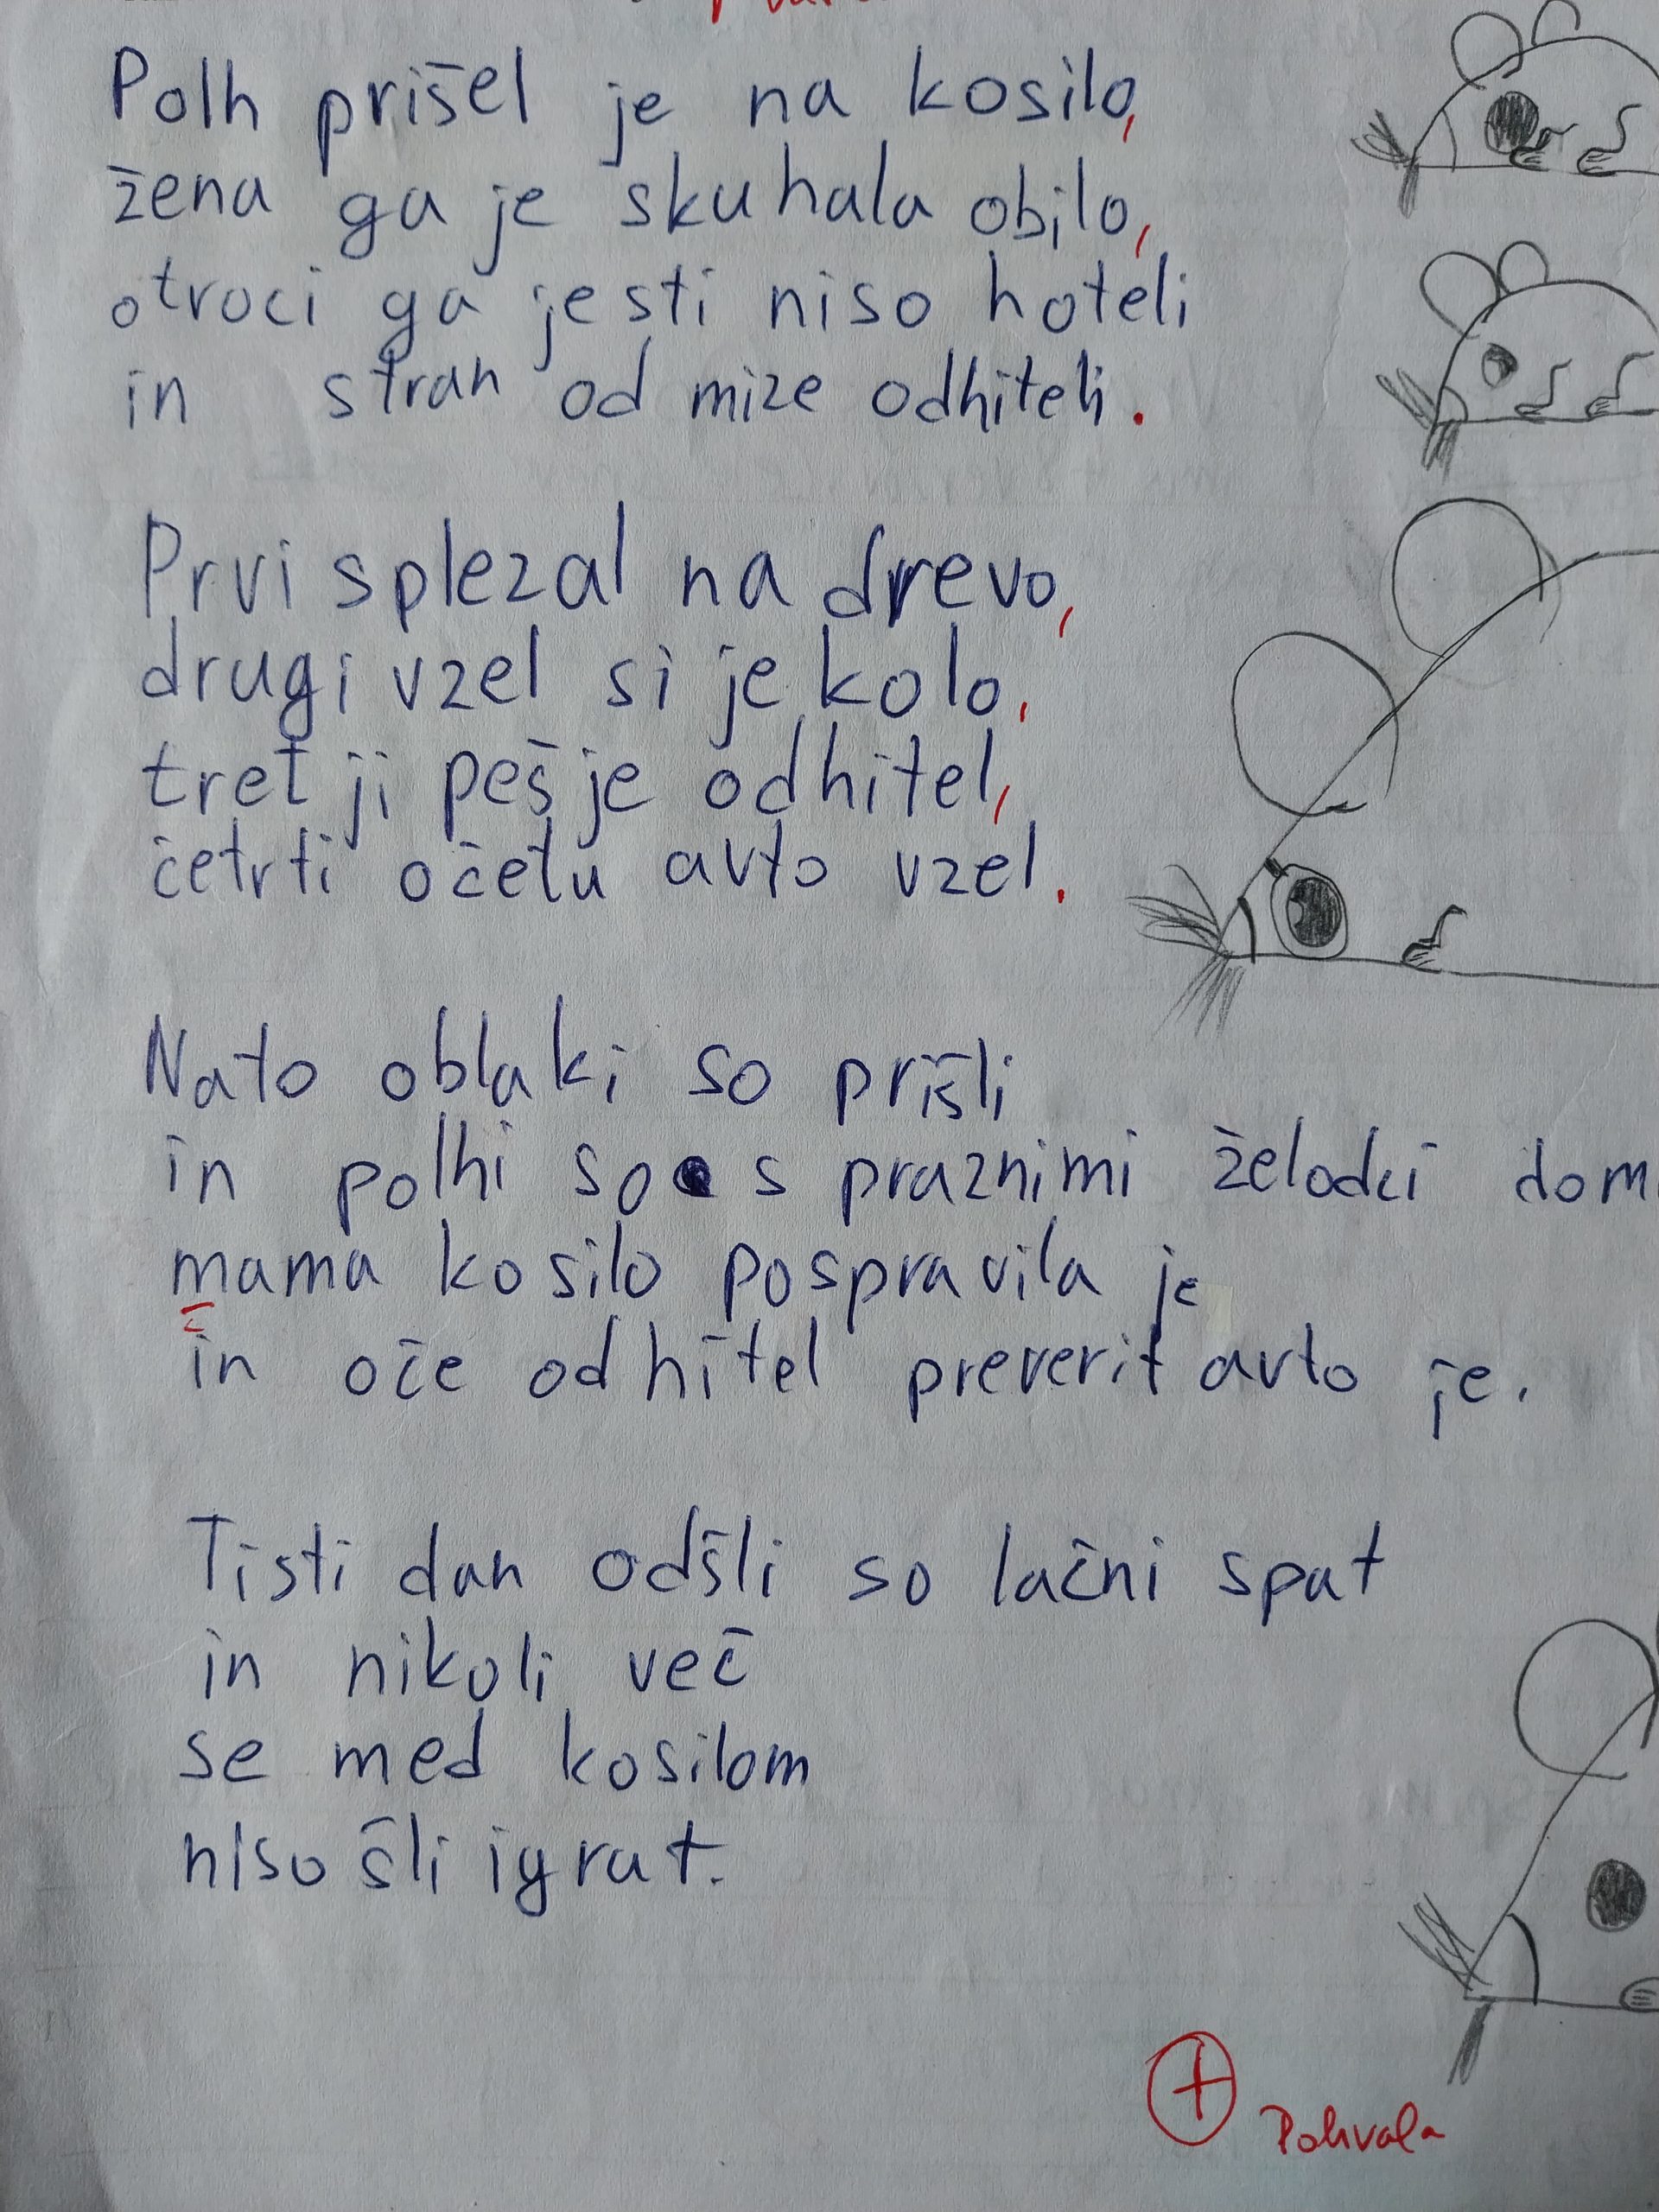 Polh prišel je na kosilo,
žena ga je skuhala obilo,
otroci ga jesti niso hoteli
in stran od mize odhiteli.
Prvi splezal na drevo,
drugi vzel si je kolo,
tretji peš je odhitel,
četrti očetu avto vzel.
Nato oblaki so prišli
in polhi so s praznimi želodci dom
mama kosilo pospravila je
in oče odhitel preverit avto je.
Tisti dan odšli so lačni spat
in nikoli več
se med kosilom
niso šli igrat.
+ Pohvala